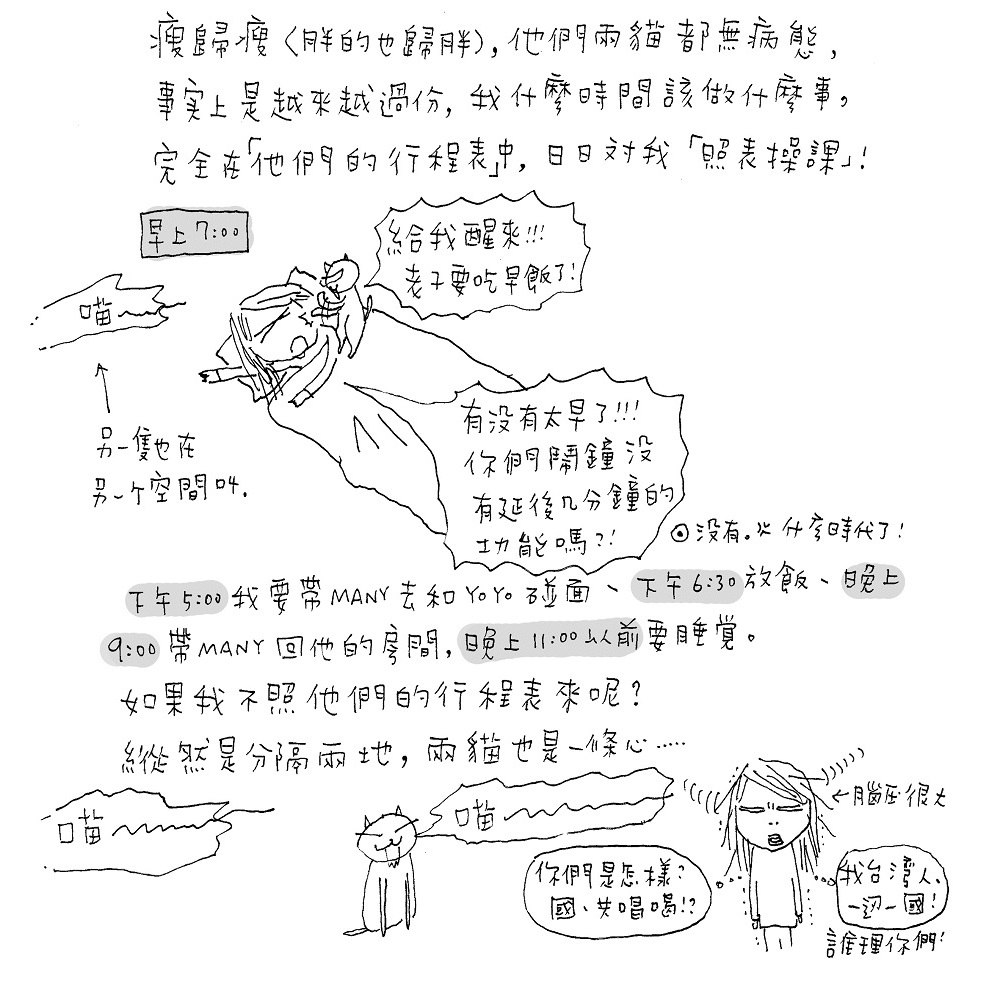 瘦歸瘦(胖的也歸胖)，他們兩貓都無病態，
事実上是越來越過份，我什麼時間該做什麼事，
完全在「他們的行程表」中，日日対我「照表操課」！
早上7:00
給我醒來!!!
老子要吃早飯了!
喵～
另一隻也在
另一个空間叫.
有没有太早了!!!
你們鬧鐘没
有延後几分鐘的
功能嗎?!
⊙没有.火 什麼時代了!
下午5:00我要帶MANY去和YOYO碰面、下午6:30放飯、晚上
9:00帶MANY回他的房間，晚上11:00以前要睡覚。
如果我不照他們的行程表來呢？
縱然是分隔兩地，兩貓也是一條心……
喵～
喵～
←腦压很大
你們是怎樣?
國、共唱喝!?
我台湾人.
一边一國!
誰理你們!